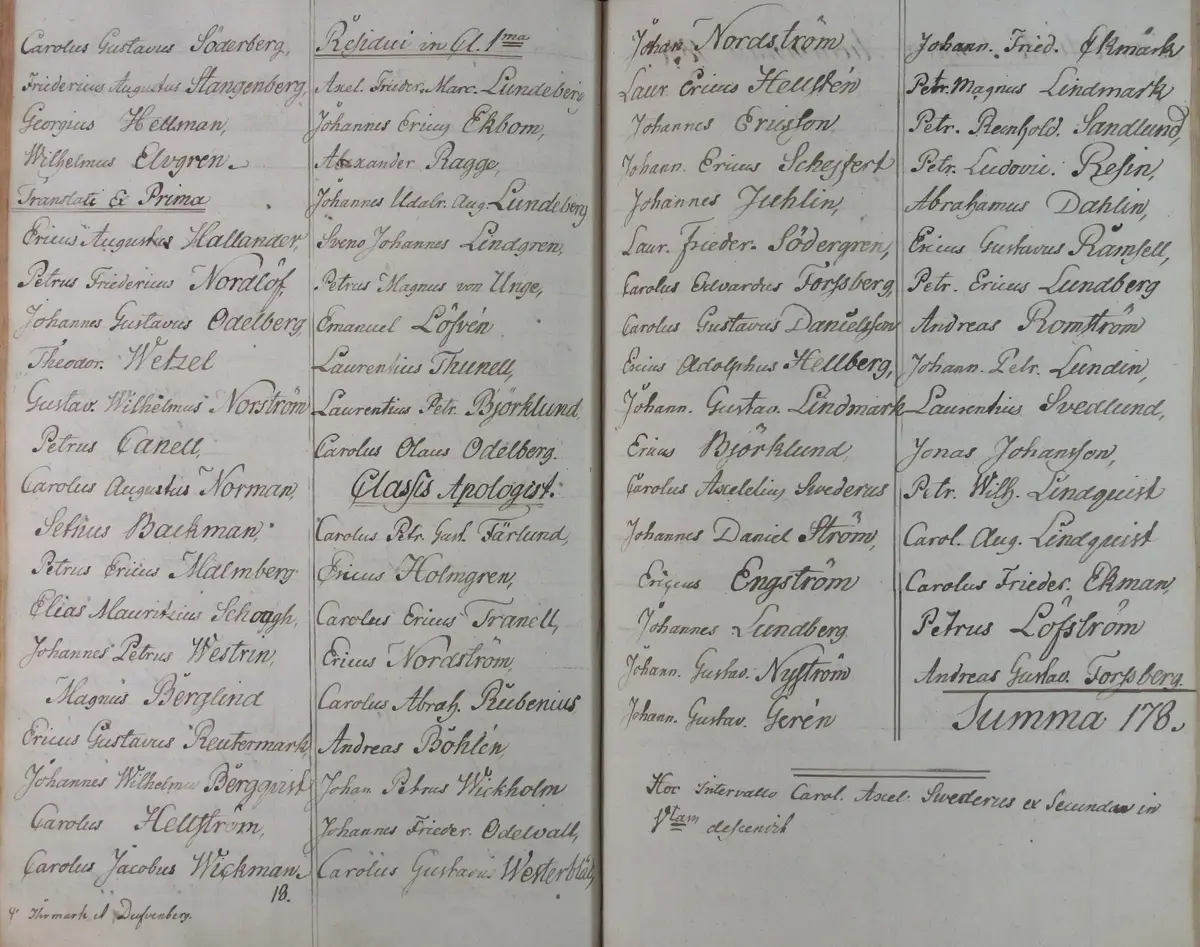 Carolus Gustavus Söderberg,
Friedericus Augustus Stangenberg,
Georgius Hellman,
Wilhelmus Elvgren.
Translati Ex Prima
Ericus Augustus Hallander,
Petrus Friedericus Nordlöf,
Johannes Gustavus Odelberg,
Theodor. Wetzel
Gustav. Wilhelmus Norström
Petrus Canell,
Carolus Augustus Norman,
Sethus Backman,
Petrus Ericus Malmberg
Elias Mauritzius Schough,
Johannes Petrus Westrin,
Magnus Berglind
Ericus Gustavus Reutermark,
Johannes Wilhelmus Bergqvist
Carolus Hellström,
Carolus Jacobus Wickman.
18.
Residui in Cl. 1ma
Axel. Frieder. Marc. Lundeberg
Johannes Ericus Ekbom,
Alexander Ragge,
Johannes Udalr. Aug. Lundeberg
Sveno Johannes Lindgren,
Petrus Magnus von Unge,
Emanuel Löfvén
Laurentius Thunell,
Laurentius Petr. Björklund
Carolus Olaus Odelberg.
Classis Apologist.
Carolus Petr. Gust. Färlund,
Ericus Holmgren,
Carolus Ericus Tranell,
Ericus Nordström,
Carolus Abrah. Rubenius
Andreas Böhlén,
Johan Petrus Wickholm
Johannes Frieder. Odelvall,
Carolus Gustavus Westerblad,
Johan Nordström
Laur. Ericus Hellstén
Johannes Ericsson
Johann. Ericus Scheffert
Johannes Juhlin,
Laur. Frieder. Södergren,
Carolus Edvardus Forssberg,
Carolus Gustavus Danielsson
Ericus Adolphus Hellberg,
Johann. Gustav. Lindmark
Ericus Björklund
Carolus Axelelius Swederus
Johannes Daniel Ström,
Ericus Engström
Johannes Lundberg
Johann. Gustav. Nyström
Johann. Gustav. Gerén
Johann. Fried. Ekmark
Petr. Magnus Lindmark
Petr. Reinhold. Sandlund,
Petr. Ludovic. Resin,
Abrahamus Dahlin,
Ericus Gustavus Ramsell,
Petr. Ericus Lundberg
Andreas Romström
Johann. Petr. Lundin,
Laurentius Svedlund,
Jonas Johansson,
Petr. Wilh. Lindquist
Carol. Aug. Lindquist
Carolus Frieder. Ekman,
Petrus Löfström
Andreas Gustav. Forssberg.
Summa 178.
Hoc Intervallo Carol. Axel. Swederus ex Secunda in
1tam descendit